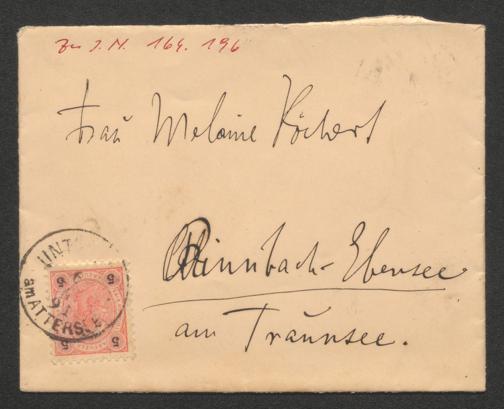 zu I.N. 164.196
Frau Melanie Köchert
Rinnbach-Ebensee
am Traunsee.
UNT
91
am ATTERSEE
5 5
5 5